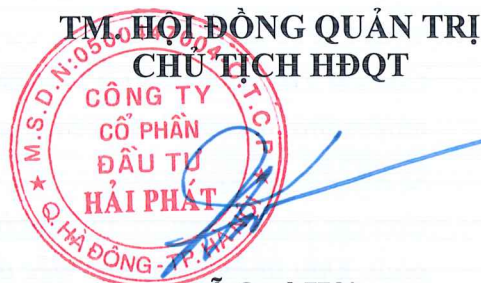 TM. HỘI ĐỒNG QUẢN TRỊ
CHỦ TỊCH HĐQT
M.S.D.N:0500447004-C.T.C.P
CÔNG TY
CỔ PHẦN
ĐẦU TƯ
HẢI PHÁT
Q. HÀ ĐÔNG - TP. HÀ NỘI